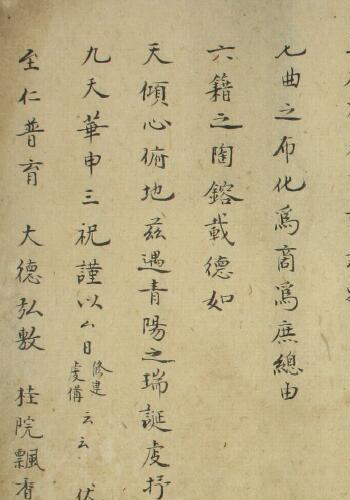 七曲之布化爲商爲庶總由
六籍之陶鎔載德如
天傾心俯地茲遇青陽之瑞誕虔抒
九天華申三祝謹以厶日修建虔備云云伏
至仁普育 大德弘敷 桂院飄香